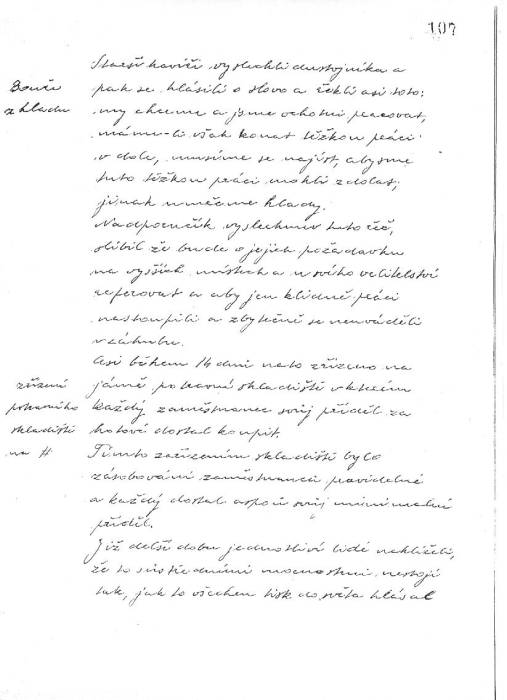 107
Starší havíři vyslechli dustojníka a
pak se hlásili o slovo a řekli asi toto:
Bouře
z hladu
my chceme a jsme ochotni pracovat,
máme-li však konat těžkou práci
v dole, musíme se najíst, abysme
tuto těžkou práci mohli zdolat,
jinak umřeme hlady.
Nadporučík vyslechnuv tuto řeč,
slíbil že bude o jejich požadavku
na vyšších místech a u svého velitelství
referovat a aby jen klidně práci
nastoupili a zbytečně se neuváděli
v záhubu.
Asi během 14 dní na to zřízeno na
jámě potravní skladiště v kterém
každý zaměstnanec svůj příděl za
hotové dostal koupit.
zřízení
potravního
skladiště
na #
Tímto zařízením skladiště bylo
zásobování zaměstnanců pravidelné
a každý dostal aspoň svůj minimalné
příděl.
Již delší dobu jednotliví lidé neklíželi,
že to s ústředními mocnostmi nestojí
tak, jak to všechen tisk do světa hlásal